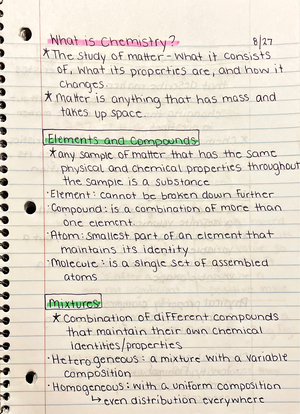 What is Chemistry? 8/27
*The study of matter - what it consists
of, what its properties are, and how it
changes.
*Matter is anything that has mass and
takes up space.
Elements and Compounds
*any sample of matter that has the same
physical and chemical properties throughout
the sample is a substance
·Element: cannot be broken down further
·Compound: is a combination of more than
one element.
·Atom: smallest part of an element that
maintains its identity
·Molecule: is a single set of assembled
atoms
Mixtures
*Combination of different compounds
that maintain their own chemical
identities/properties
·Heterogeneous: a mixture with a variable
composition
·Homogeneous: with a uniform composition
↳even distribution everywhere